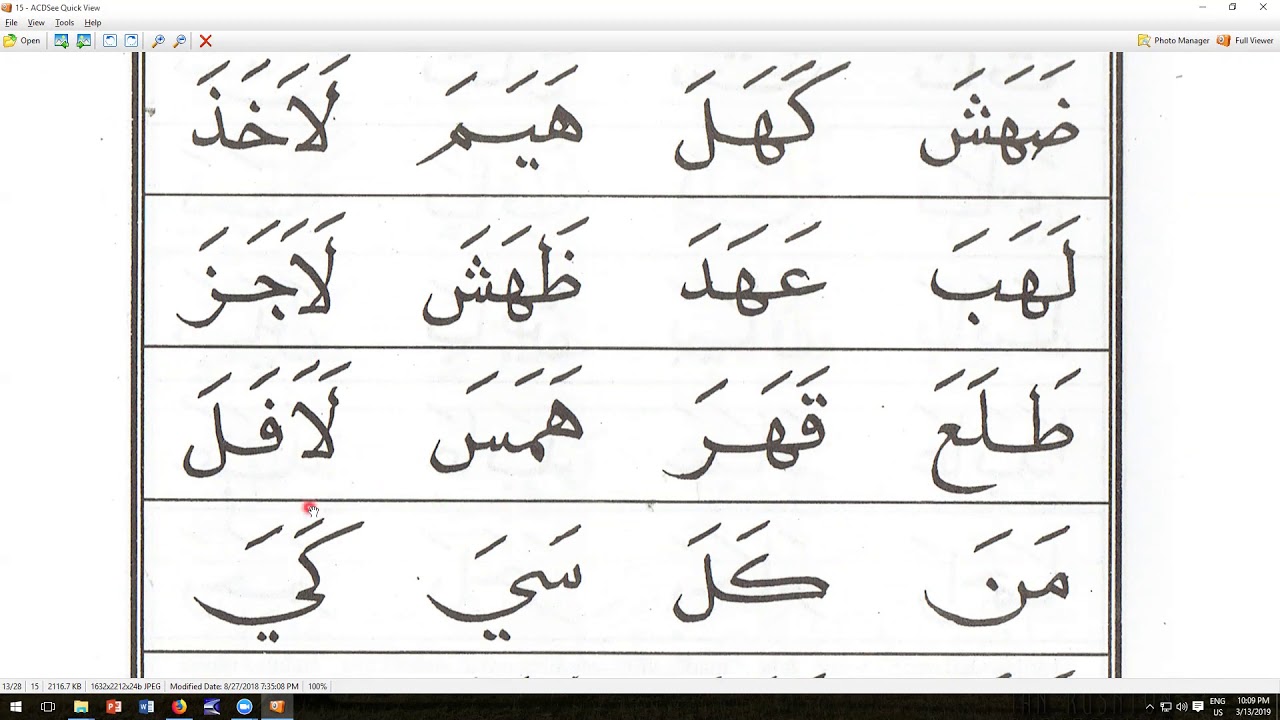 15 - ACDSee Quick View
File View Tools Help
Open Photo Manager Full Viewer
ضَهَشَ كَهَلَ هَيَمَ لَاَخَذَ
لَهَبَ عَهَدَ ظَهَشَ لَاَجَزَ
طَلَعَ قَهَرَ هَمَسَ لَاَفَلَ
مَنَ كَلَ سَيَ كَيَ
13/28 15 2116.7 KB 1632x2212x24b JPEG Modified Date: 8/27/2018 7:35:08 PM 100%
ENG 10:09 PM
US 3/13/2019